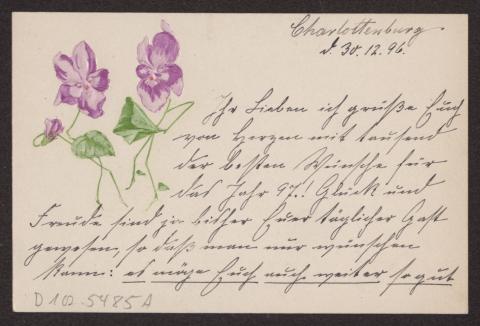 Charlottenburg.
d. 30.12.96.
Ihr Lieben ich grüße Euch
von Herzen mit tausend
der besten Wünsche für
das Jahr 97! Glück und
Freude sind ja bisher Euer täglicher Gast
gewesen, so daß man nur wünschen
kann: es möge Euch auch weiter so gut
D 102-5485 A